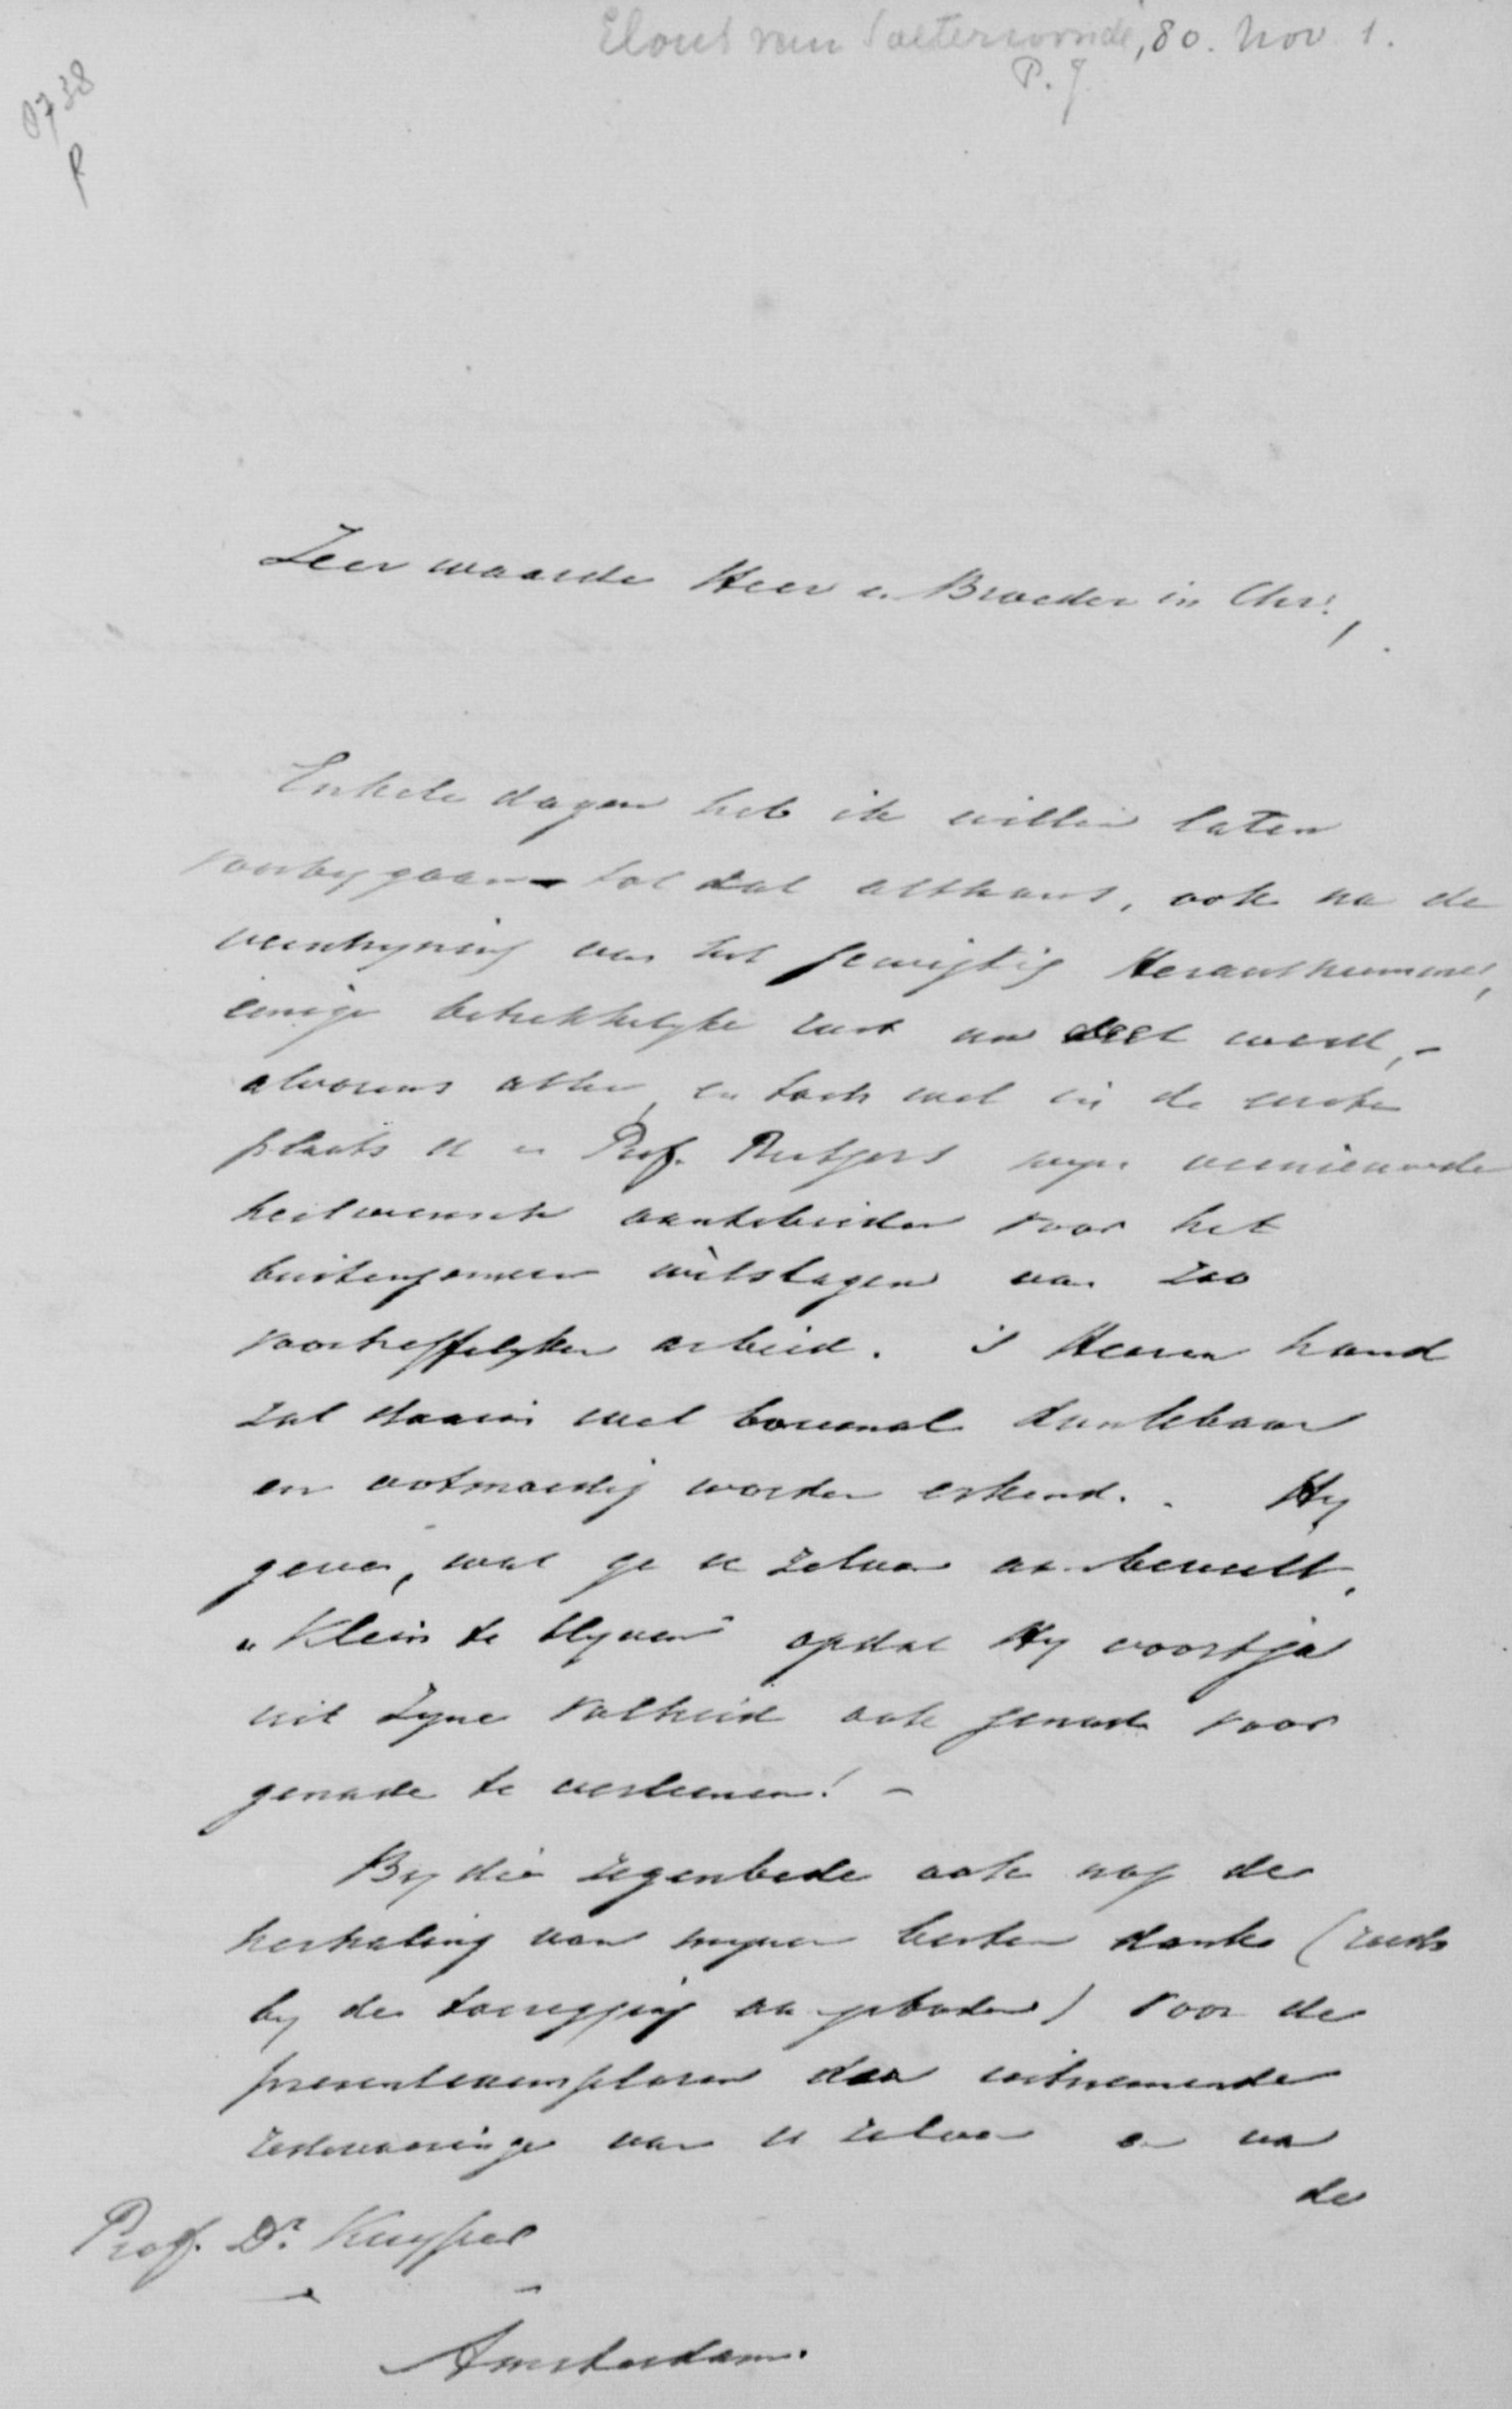 Elout van Soeterwoude, 80. Nov 1.
P. J.
0738
P
Zeer waarde Heer en Broeder in Chr.,
Enkele dagen heb ik willen laten
voorbygaan tot dat althans, ook na de
verschyning van het gewigtig Herautnummer,
eenige betrekkelyke rust uw deel werd, –
alvorens allen, en toch wel in de eerste
plaats U en Prof. Rutgers myn vernieuwde
heilwensch aantebieden voor het
buitengemeen welslagen van zoo
voortreffelyken arbeid. 's Heeren hand
zal daarin wel bovenal dankbaar
en ootmoedig worden erkend. Hy
geve, wat ge U zelven aanbeveelt,
„Klein te blyven" opdat Hy voortga
uit Zyne volheid ook genade voor
genade te verleenen! –
By die zegenbede ook nog de
herhaling van mynen besten dank (reeds
by de toezegging aangeboden) voor de
presentexemplaren der uitnemende
redevoeringen van U zelven en van
de
Prof. Dr. Kuyper
Amsterdam.